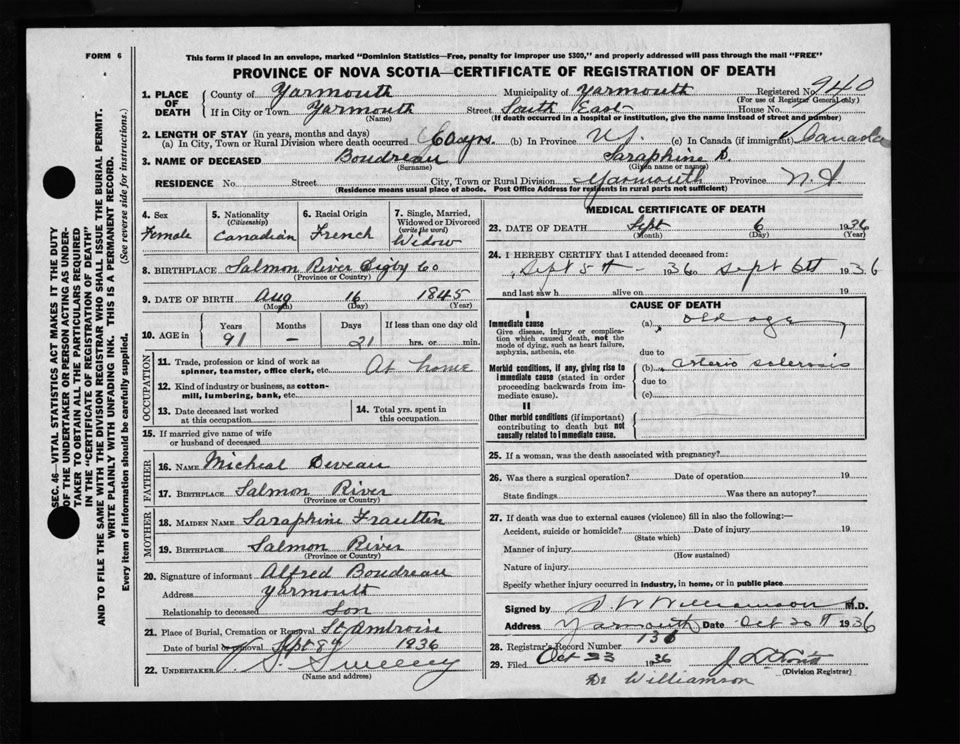 FORM 6
This form if placed in an envelope, marked "Dominion Statistics—Free, penalty for improper use $300," and properly addressed will pass through the mail "FREE"
PROVINCE OF NOVA SCOTIA—CERTIFICATE OF REGISTRATION OF DEATH
SEC. 46—VITAL STATISTICS ACT MAKES IT THE DUTY
OF THE UNDERTAKER OR PERSON ACTING AS UNDER-
TAKER TO OBTAIN ALL THE PARTICULARS REQUIRED
IN THE "CERTIFICATE OF REGISTRATION OF DEATH"
AND TO FILE THE SAME WITH THE DIVISION REGISTRAR WHO SHALL ISSUE THE BURIAL PERMIT.
WRITE PLAINLY WITH UNFADING INK. THIS IS A PERMANENT RECORD.
Every item of information should be carefully supplied. (See reverse side for instructions.)
1. PLACE OF DEATH
County of Yarmouth Municipality of Yarmouth Registered No. 940
(For use of Registrar General only)
If in City or Town Yarmouth Street South East House No.
(Name) (If death occurred in a hospital or institution, give the name instead of street and number)
2. LENGTH OF STAY (in years, months and days)
(a) In City, Town or Rural Division where death occurred yrs. (b) In Province (c) In Canada (if immigrant) Canada
3. NAME OF DECEASED Boudreau Saraphine D.
(Surname) (Given name or names)
RESIDENCE No. Street City, Town or Rural Division Yarmouth Province N.S.
(Residence means usual place of abode. Post Office Address for residents in rural parts not sufficient)
4. Sex
Female
5. Nationality
(Citizenship)
Canadian
6. Racial Origin
French
7. Single, Married,
Widowed or Divorced
(write the word)
Widow
8. BIRTHPLACE Salmon River Digby Co
(Province or Country)
9. DATE OF BIRTH Aug 16 1845
(Month) (Day) (Year)
10. AGE in
Years Months Days If less than one day old
91 – 21 hrs. or min.
OCCUPATION
11. Trade, profession or kind of work as
spinner, teamster, office clerk, etc. At home
12. Kind of industry or business, as cotton-
mill, lumbering, bank, etc.
13. Date deceased last worked
at this occupation
14. Total yrs. spent in
this occupation
15. If married give name of wife
or husband of deceased
FATHER
16. NAME Micheal Deveau
17. BIRTHPLACE Salmon River
(Province or Country)
MOTHER
18. MAIDEN NAME Saraphine
19. BIRTHPLACE Salmon River
(Province or Country)
20. Signature of informant Alfred Boudreau
Address Yarmouth
Relationship to deceased Son
21. Place of Burial, Cremation or Removal St Ambroise
Date of burial or removal Sept 8th 1936
22. UNDERTAKER Sweeney
(Name and address)
MEDICAL CERTIFICATE OF DEATH
23. DATE OF DEATH Sept 6 1936
(Month) (Day) (Year)
24. I HEREBY CERTIFY that I attended deceased from:
Sept 5th – 1936 to Sept 6th 1936
and last saw h alive on 19
CAUSE OF DEATH
I
Immediate cause
Give disease, injury or complica-
tion which caused death, not the
mode of dying, such as heart failure,
asphyxia, asthenia, etc.
Morbid conditions, if any, giving rise to
immediate cause (stated in order
proceeding backwards from im-
mediate cause).
II
Other morbid conditions (if important)
contributing to death but not
causally related to immediate cause.
(a) old age
due to
(b) Arterio sclerosis
due to
(c)
25. If a woman, was the death associated with pregnancy?
26. Was there a surgical operation? Date of operation 19
State findings Was there an autopsy?
27. If death was due to external causes (violence) fill in also the following:—
Accident, suicide or homicide? Date of injury 19
(State which)
Manner of injury
(How sustained)
Nature of injury
Specify whether injury occurred in industry, in home, or in public place
Signed by S. W. Williamson M.D.
Address Yarmouth Date Oct 20th 1936
28. Registrar's Record Number 136
29. Filed Oct 23 1936
(Division Registrar)
Dr Williamson